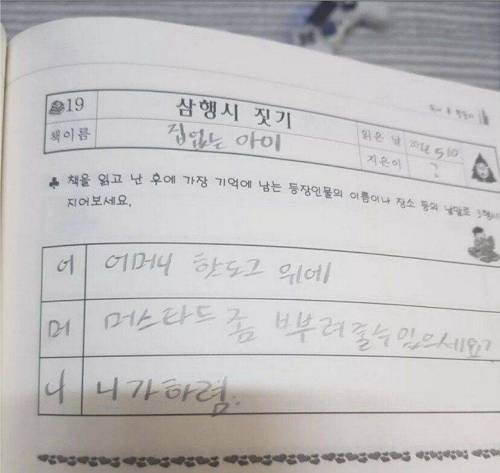 19 삼행시 짓기
책이름 집없는 아이 읽은 날 510
지은이 ?
♣ 책을 읽고 난 후에 가장 기억에 남는 등장인물의 이름이나 장소 등의 낱말로 3행시
지어보세요.
어 어머니 핫도그 위에
머 머스타드 좀 뿌려줄수있으세요?
니 니가하렴.